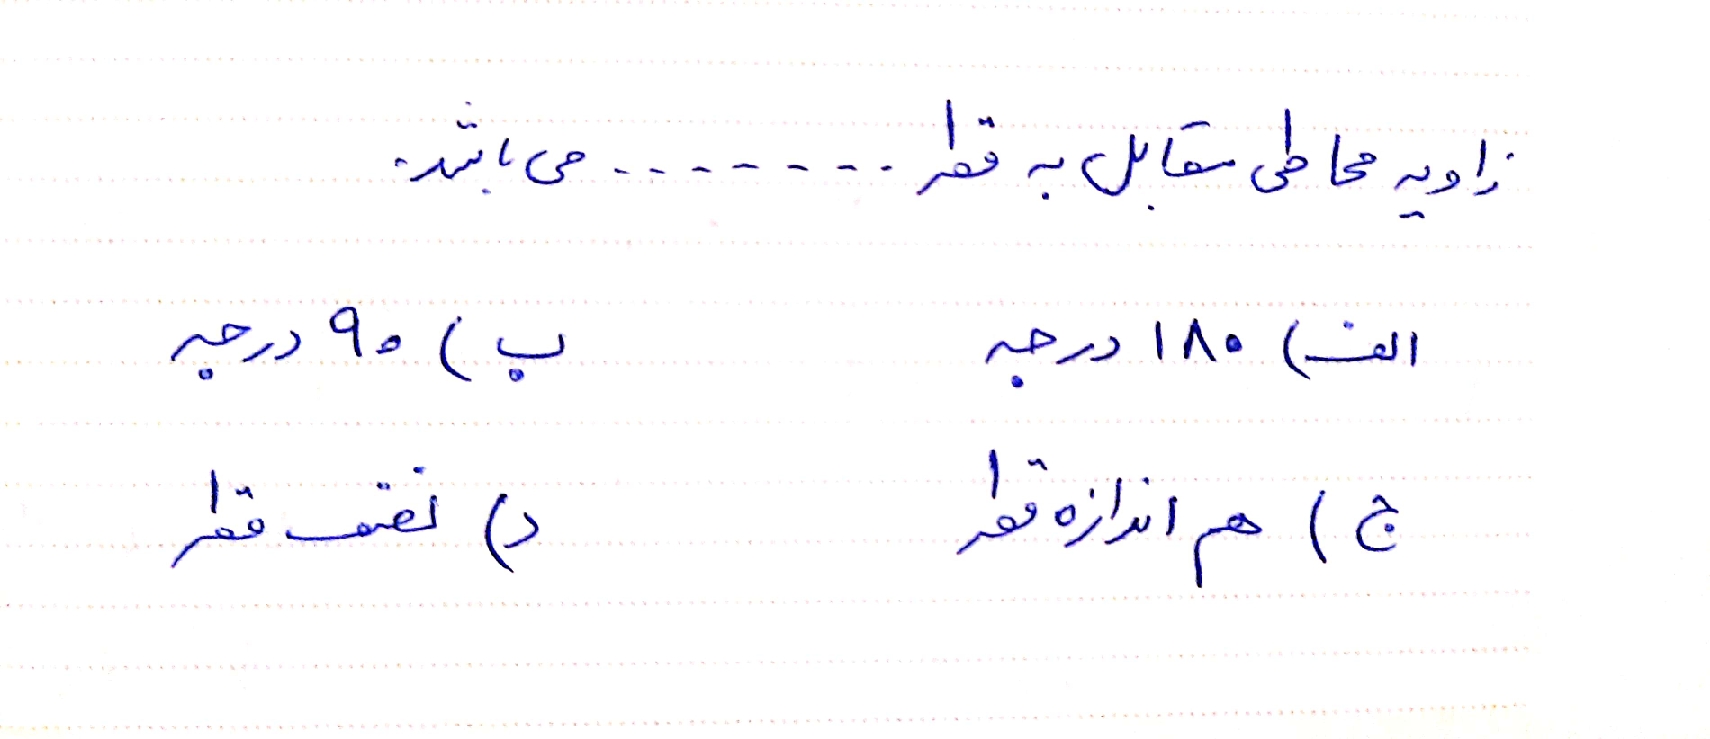 زاویه محاطی مقابل به قطر ........ می باشد.
الف) ۱۸۰ درجه ب) ۹۰ درجه
ج) هم اندازه قطر د) نصف قطر